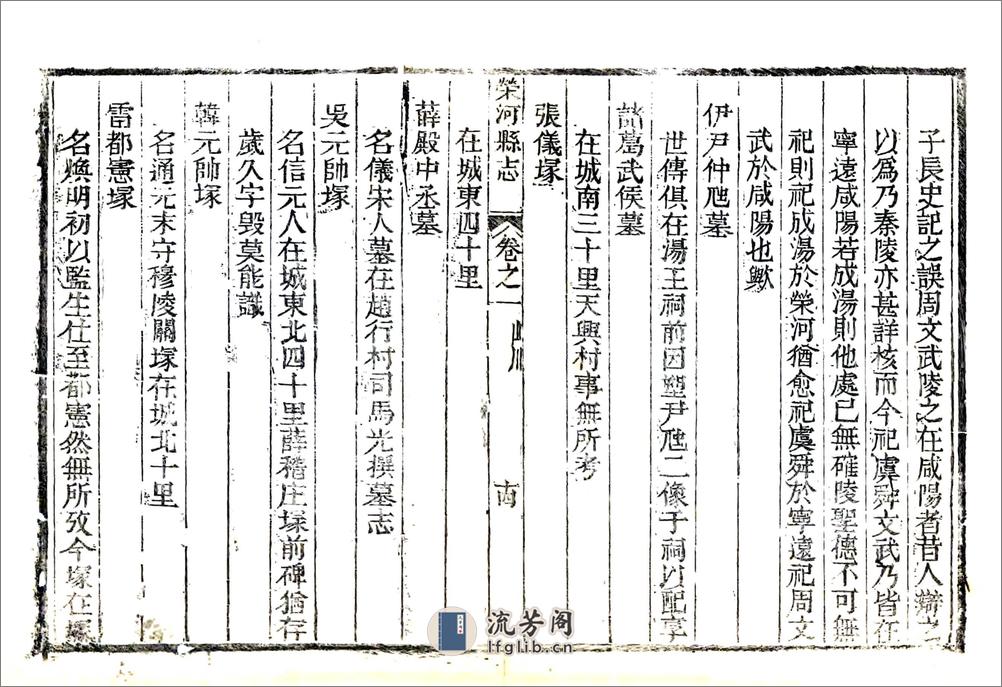 子長史記之誤周文武陵之在咸陽者昔人辯之
以爲乃秦陵亦甚詳核而今祀虞舜文武乃皆在
寧遠咸陽若成湯則他處已無確陵聖德不可無
祀則祀成湯於榮河猶愈祀虞舜於寧遠祀周文
武於咸陽也歟
伊尹仲虺墓
世傳俱在湯王祠前因塑尹虺二像于祠以配享
諸葛武侯墓
在城南三十里天興村事無所考
張儀塚
榮河縣志 卷之一
在城東四十里
薛殿中丞墓
名儀宋人墓在趙行村司馬光撰墓志
吳元帥塚
名信元人在城東北四十里薛稽庄塚前碑猶存
歲久字毀莫能識
韓元帥塚
名通元末守穆陵關塚在城北十里
雷都憲塚
名煥明初以監生仕至都憲然無所攷今塚在
流芳阁
lfglib.cn